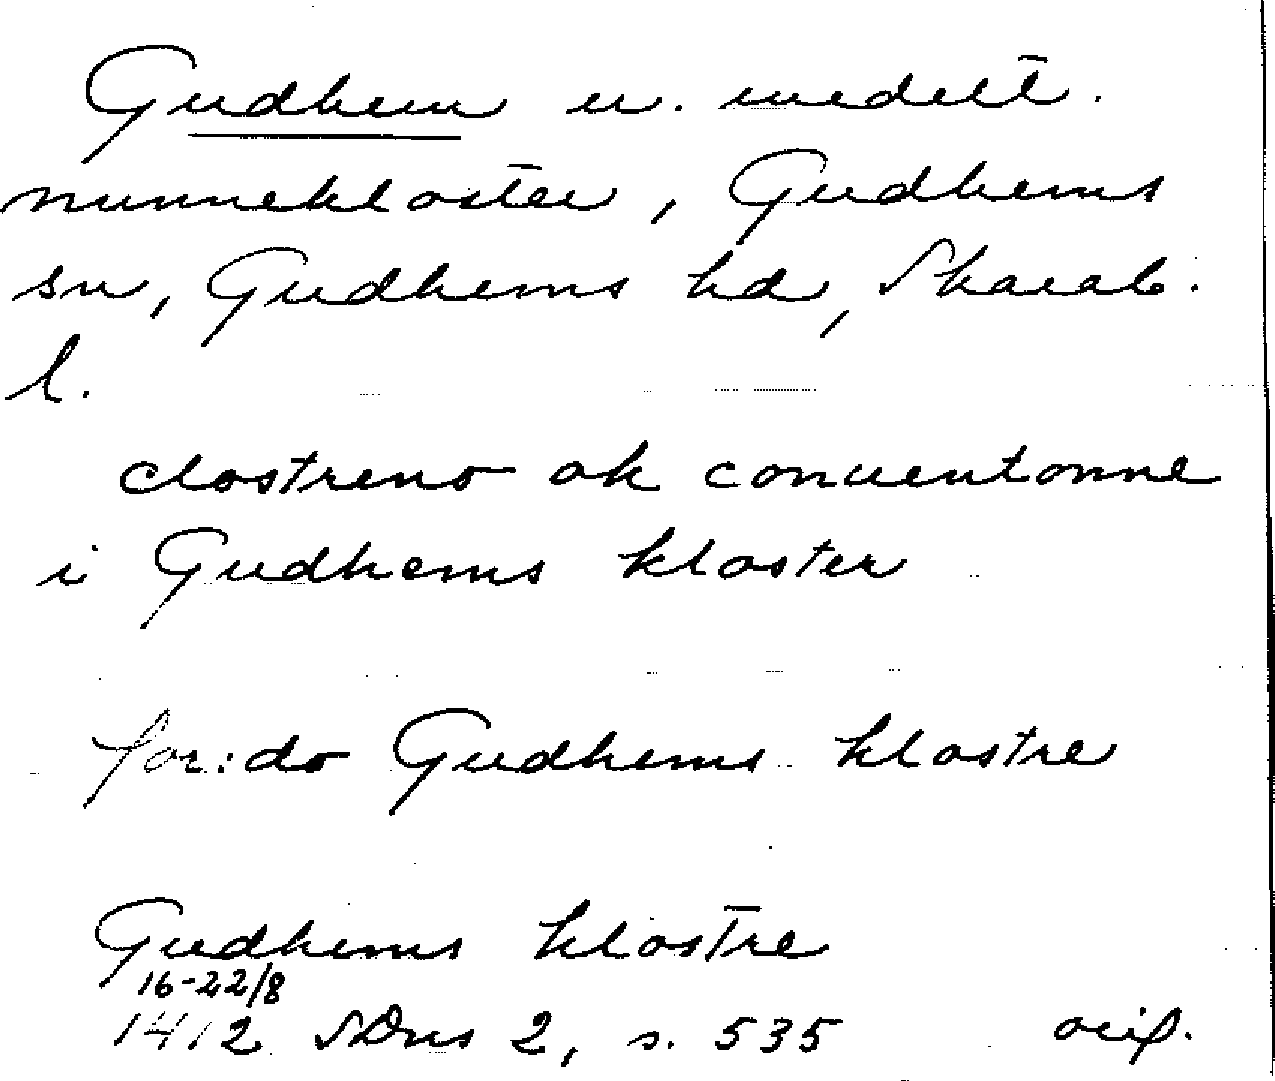 Gudhem n. medelt.
nunnekloster, Gudhems
sn, Gudhems hd, Skarab.
l.
clostreno ok conuentonne
i Gudhems kloster
for:do Gudhems klostre
Gudhems klostre
16-22/8
1412 SDns 2, s. 535 orig.